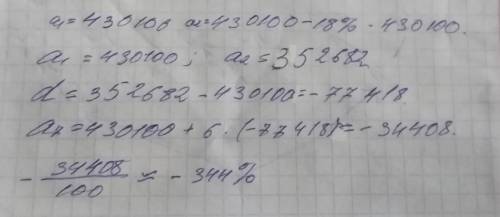 a₁=430100 a₂=430100-18% · 430100.
a₁=430100; a₂=352682
d=352682-430100=-77418.
a₇=430100+6·(-77418)=-34408.
-34408/100 ≈ -344%